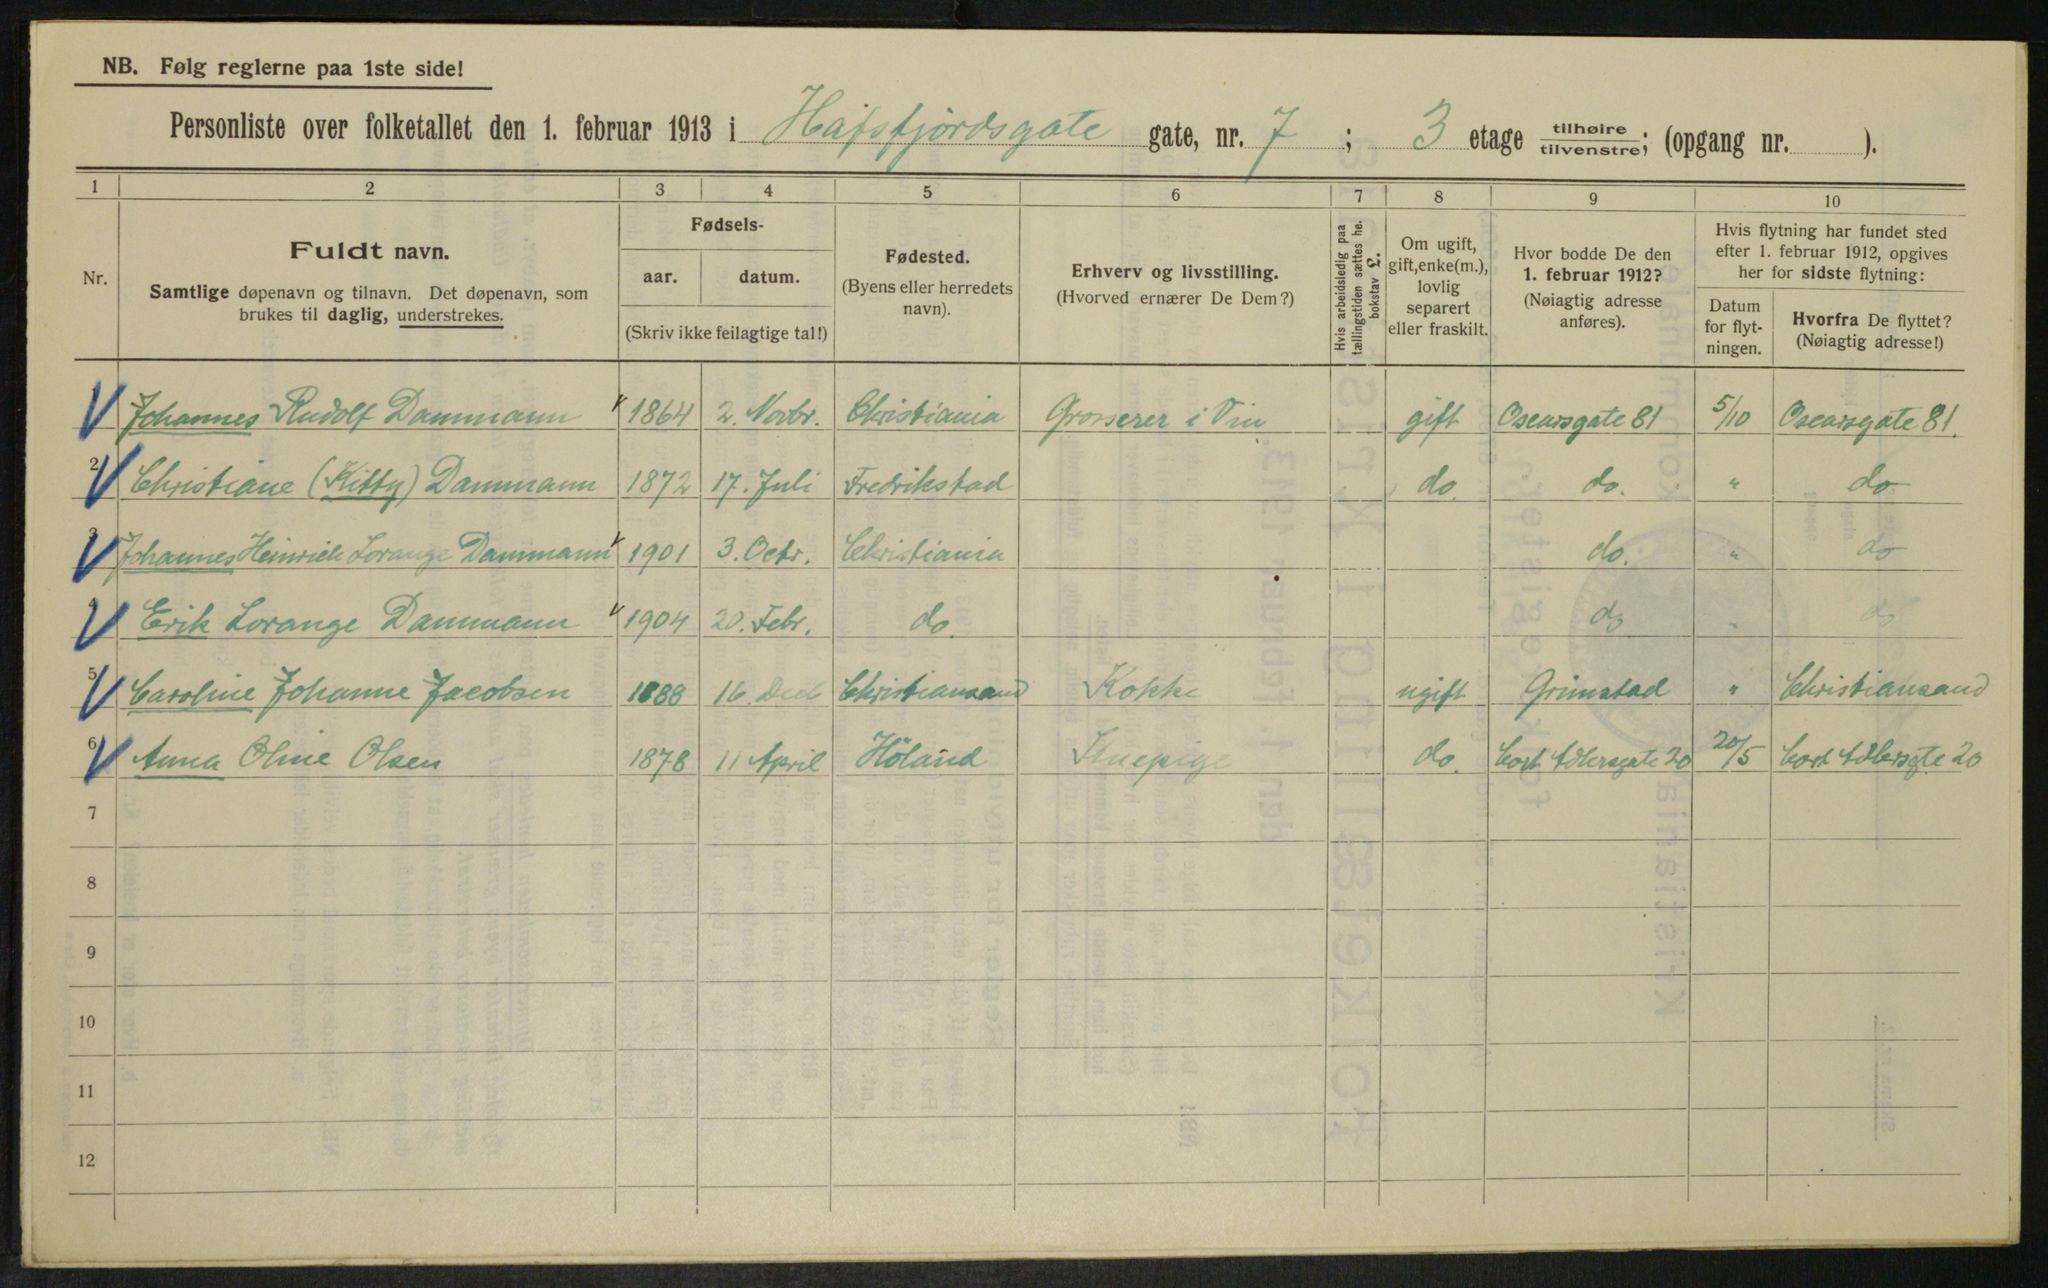 NB. Følg reglerne paa 1ste side!
Personliste over folketallet den 1. februar 1913 i Hafsfjordsgate gate, nr. 7 ; 3 etage tilhøire tilvenstre; (opgang nr. ).
1 2 3 4 5 6 7 8 9 10
Nr.
Fuldt navn.
Samtlige døpenavn og tilnavn. Det døpenavn, som
brukes til daglig, understrekes.
Fødsels-
aar. datum.
(Skriv ikke feilagtige tal!)
Fødested.
(Byens eller herredets
navn).
Erhverv og livsstilling.
(Hvorved ernærer De Dem?)
Hvis arbeidsledig paa
tællingstiden sættes her
bokstav L.
Om ugift,
gift, enke(m.),
lovlig
separert
eller fraskilt.
Hvor bodde De den
1. februar 1912?
(Nøiagtig adresse
anføres).
Hvis flytning har fundet sted
efter 1. februar 1912, opgives
her for sidste flytning:
Datum
for flyt-
ningen.
Hvorfra De flyttet?
(Nøiagtig adresse!)
Johannes Rudolf Dammann 1864 2. Novbr. Christiania Grosserer i Vin gift Oscarsgate 81 5/10 Oscarsgate 81.
2 Christiane (Kitty) Dammann 1872 17. Juli Fredrikstad do. do. " do
3 Johannes Heinrich Lorange Dammann 1901 3. Octr. Christiania do. " do
4 Erik Lorange Dammann 1904 20. Febr. do. do " do
5 Caroline Johanne Jacobsen 1888 16. Decb Christiansand Kokke ugift Grimstad " Christiansand
6 Anna Oline Olsen 1878 11 April Höland Stuepige do. Cort Adlersgate 20 20/5 Cort Adlersgte 20
7
8
9
10
11
12